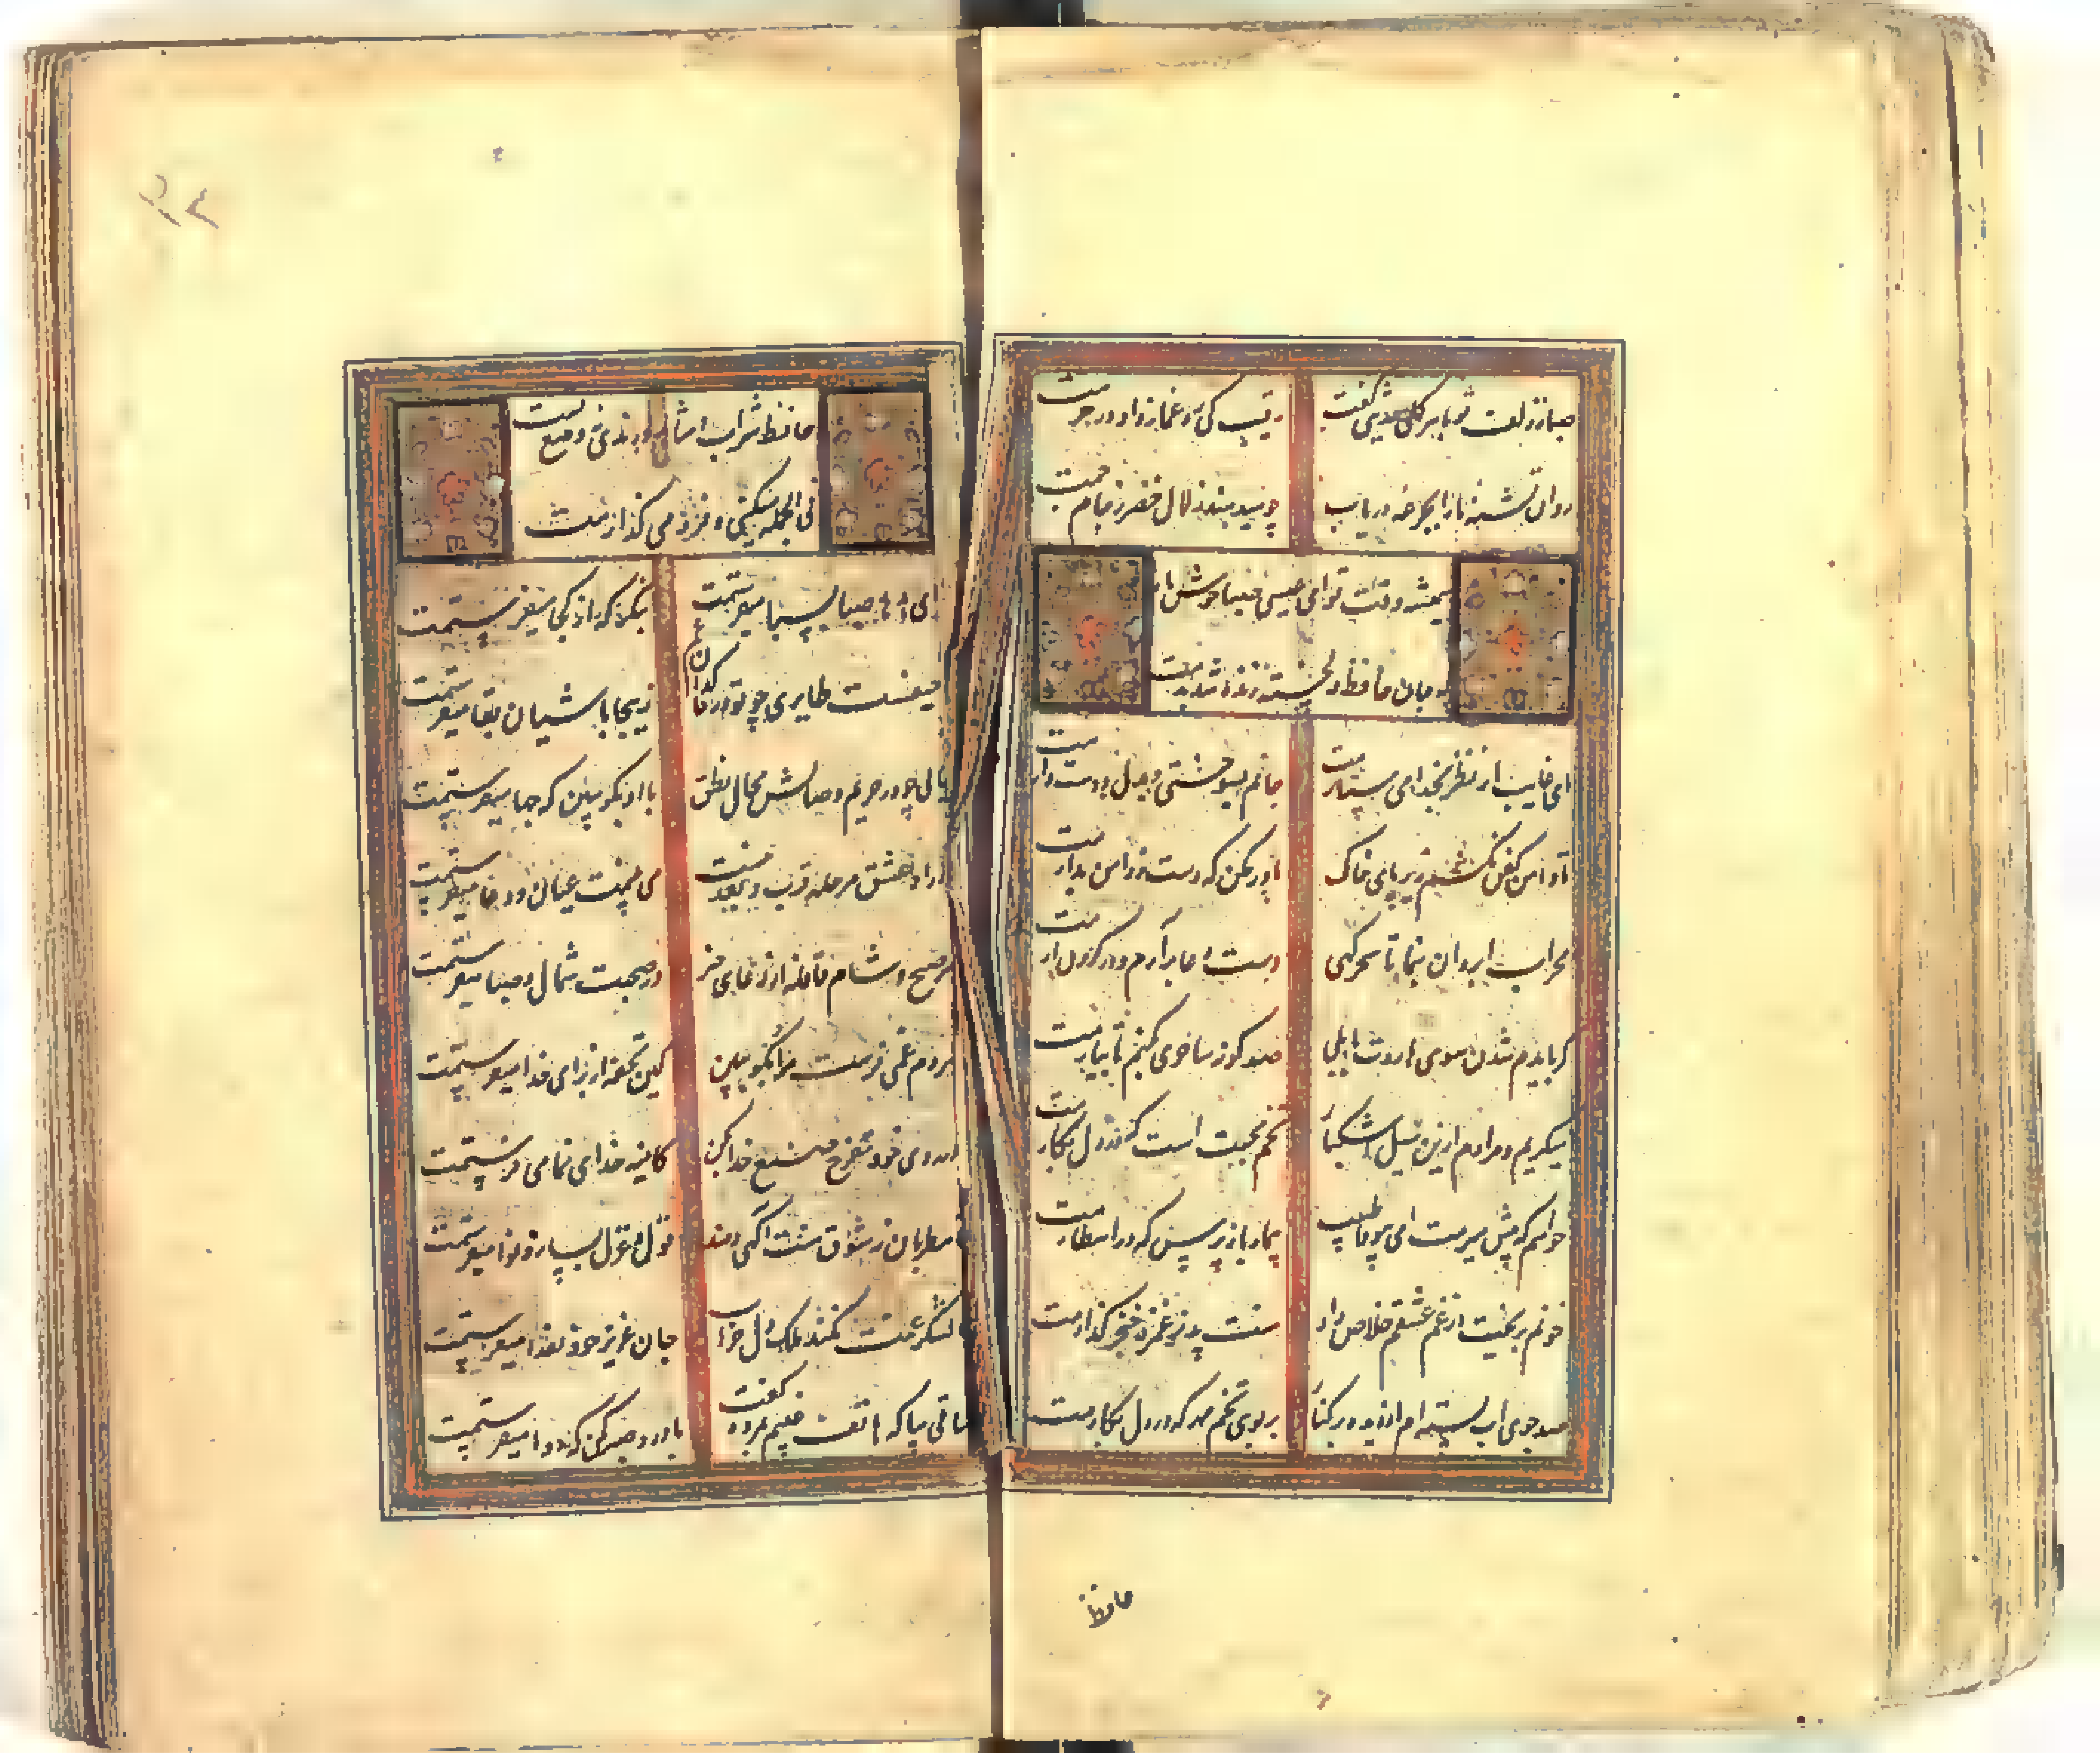 صبا ز زلف تو با هر گلی حدیثی گفت
رقیب کی ره غماز داد در حرمت
روان تشنه ما را بجرعه دریاب
چو میدهند زلال خضر ز جام جمت
همیشه وقت تو ای عیسی صبا خوش باد
که جان حافظ دلخسته زنده شد بدمت
ای غایب از نظر بخدا می سپارمت
جانم بسوختی و بدل دوست دارمت
تا دامن کفن نکشم زیر پای خاک
باور مکن که دست ز دامن بدارمت
محراب ابروان بنما تا سحرگهی
دست دعا برآرم و در گردن آرمت
گر بایدم شدن سوی هاروت بابلی
صد گونه ساحری بکنم تا بیارمت
میگریم و مرادم ازین سیل اشکبار
تخم محبت است که در دل بکارمت
خواهم که پیش میرمت ای بیوفا طبیب
بیمار باز پرس که در انتظارمت
خونم بریخت از غم عشقم خلاص داد
منت پذیر غمزه خنجر گذارمت
صد جوی آب بسته ام از دیده در کنار
بر بوی تخم مهر که در دل بکارمت
حافظ
حافظ شراب و شاهد و رندی نه وضع تست
فی الجمله میکنی و فرو می گذارمت
ای هدهد صبا بسبا میفرستمت
بنگر که از کجا بکجا میفرستمت
حیفست طایری چو تو در خاکدان غم
زینجا بآشیان بقا میفرستمت
با او بگو ببین که چها میفرستمت
در راه عشق مرحله قرب و بعد نیست
می بینمت عیان و دعا میفرستمت
هر صبح و شام قافله از دعای خیر
در صحبت شمال و صبا میفرستمت
هر دم غمی فرست مرا بگو ببین
کین تحفه از برای خدا میفرستمت
در روی خود تفرج صنع خدای کن
کاینه خدای نمای میفرستمت
تا مطربان ز شوق منت آگهی دهند
قول و غزل بساز و نوا میفرستمت
تا لشکر غمت نکند ملک دل خراب
جان عزیز خود بفدا میفرستمت
ساقی بیا که هاتف غیبم بمژده گفت
با درد صبر کن که دوا میفرستمت